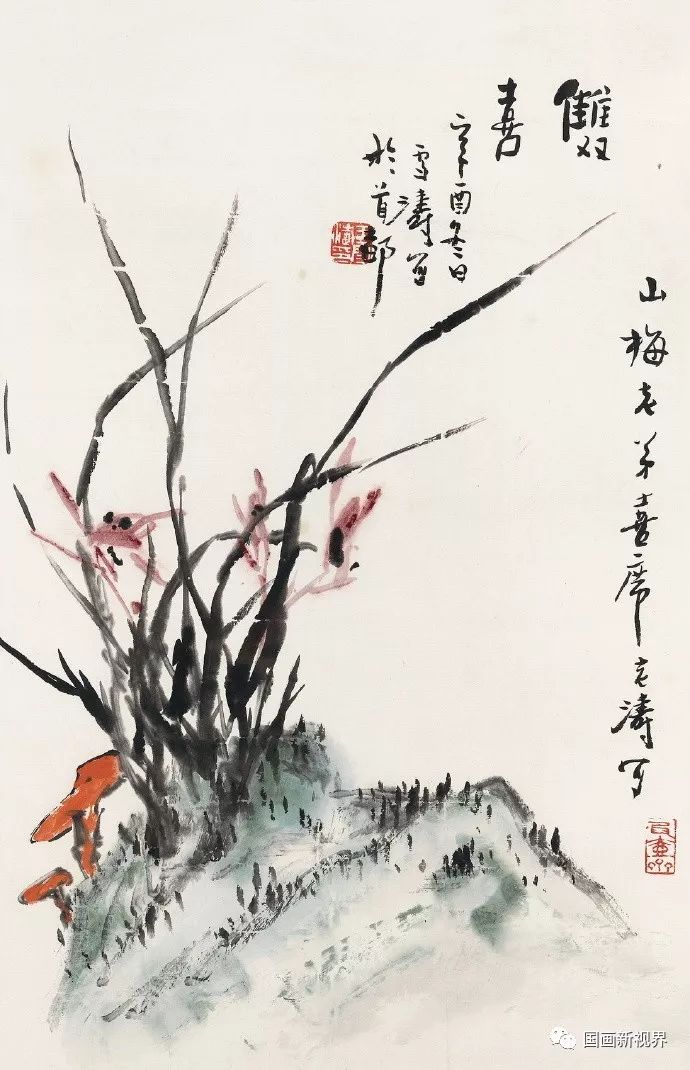 雙
喜
辛酉冬日
雪濤写
於首都
山梅老弟喜席老濤写
国画新视界